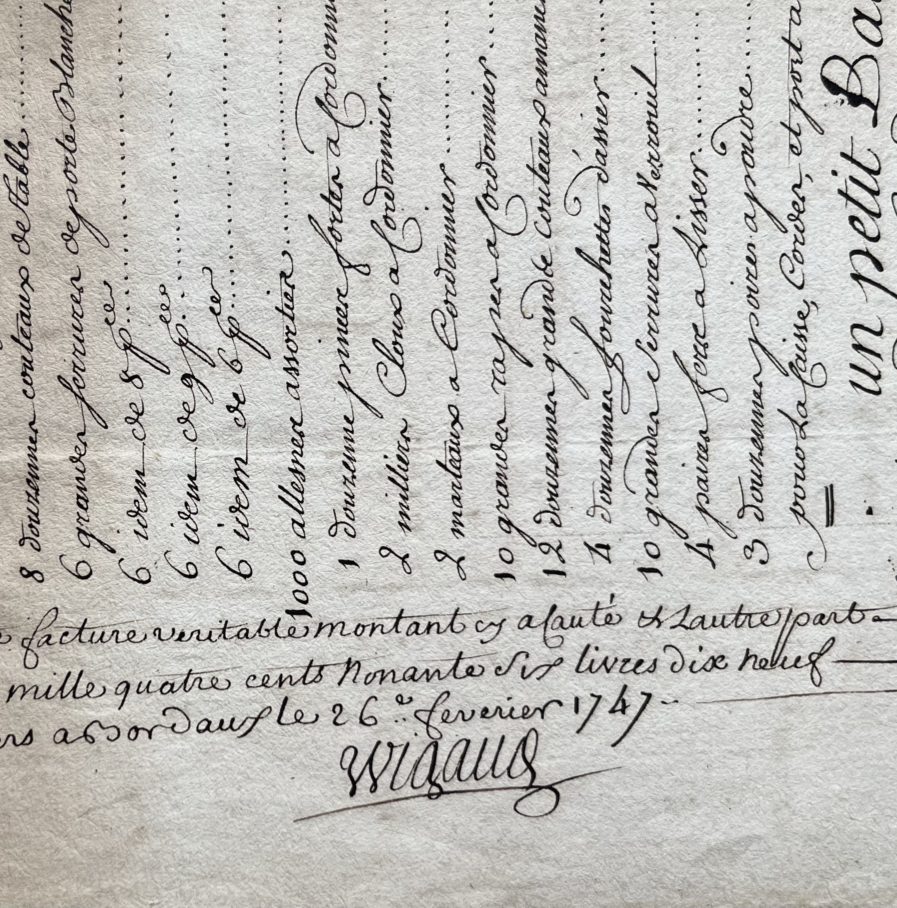 8 douzennes couteaux de table
6 grandes serrures de porte Blanche
6 idem de 8 pce
6 idem de 9 pce
6 idem de 6 pce
1000 allesnes assorties
1 douzenne pinces fortes a Cordonn
2 milliers Cloux a Cordonnier
2 marteaux a Cordonnier
10 grandes rapes a Cordonnier
12 douzennes grands couteaux amanch
4 douzennes fourchettes d'assier
10 grandes serrures a Verrouil
4 paires fers a Lisser
3 douzennes poires a poudre
pour La Caisse, Cordes, et port a
un petit Ba
facture veritable montant cy a Cauté & L'autre part
mille quatre cents Nonante Six livres dix neuf
ers a Bordaux le 26e feverier 1747
Wigaud